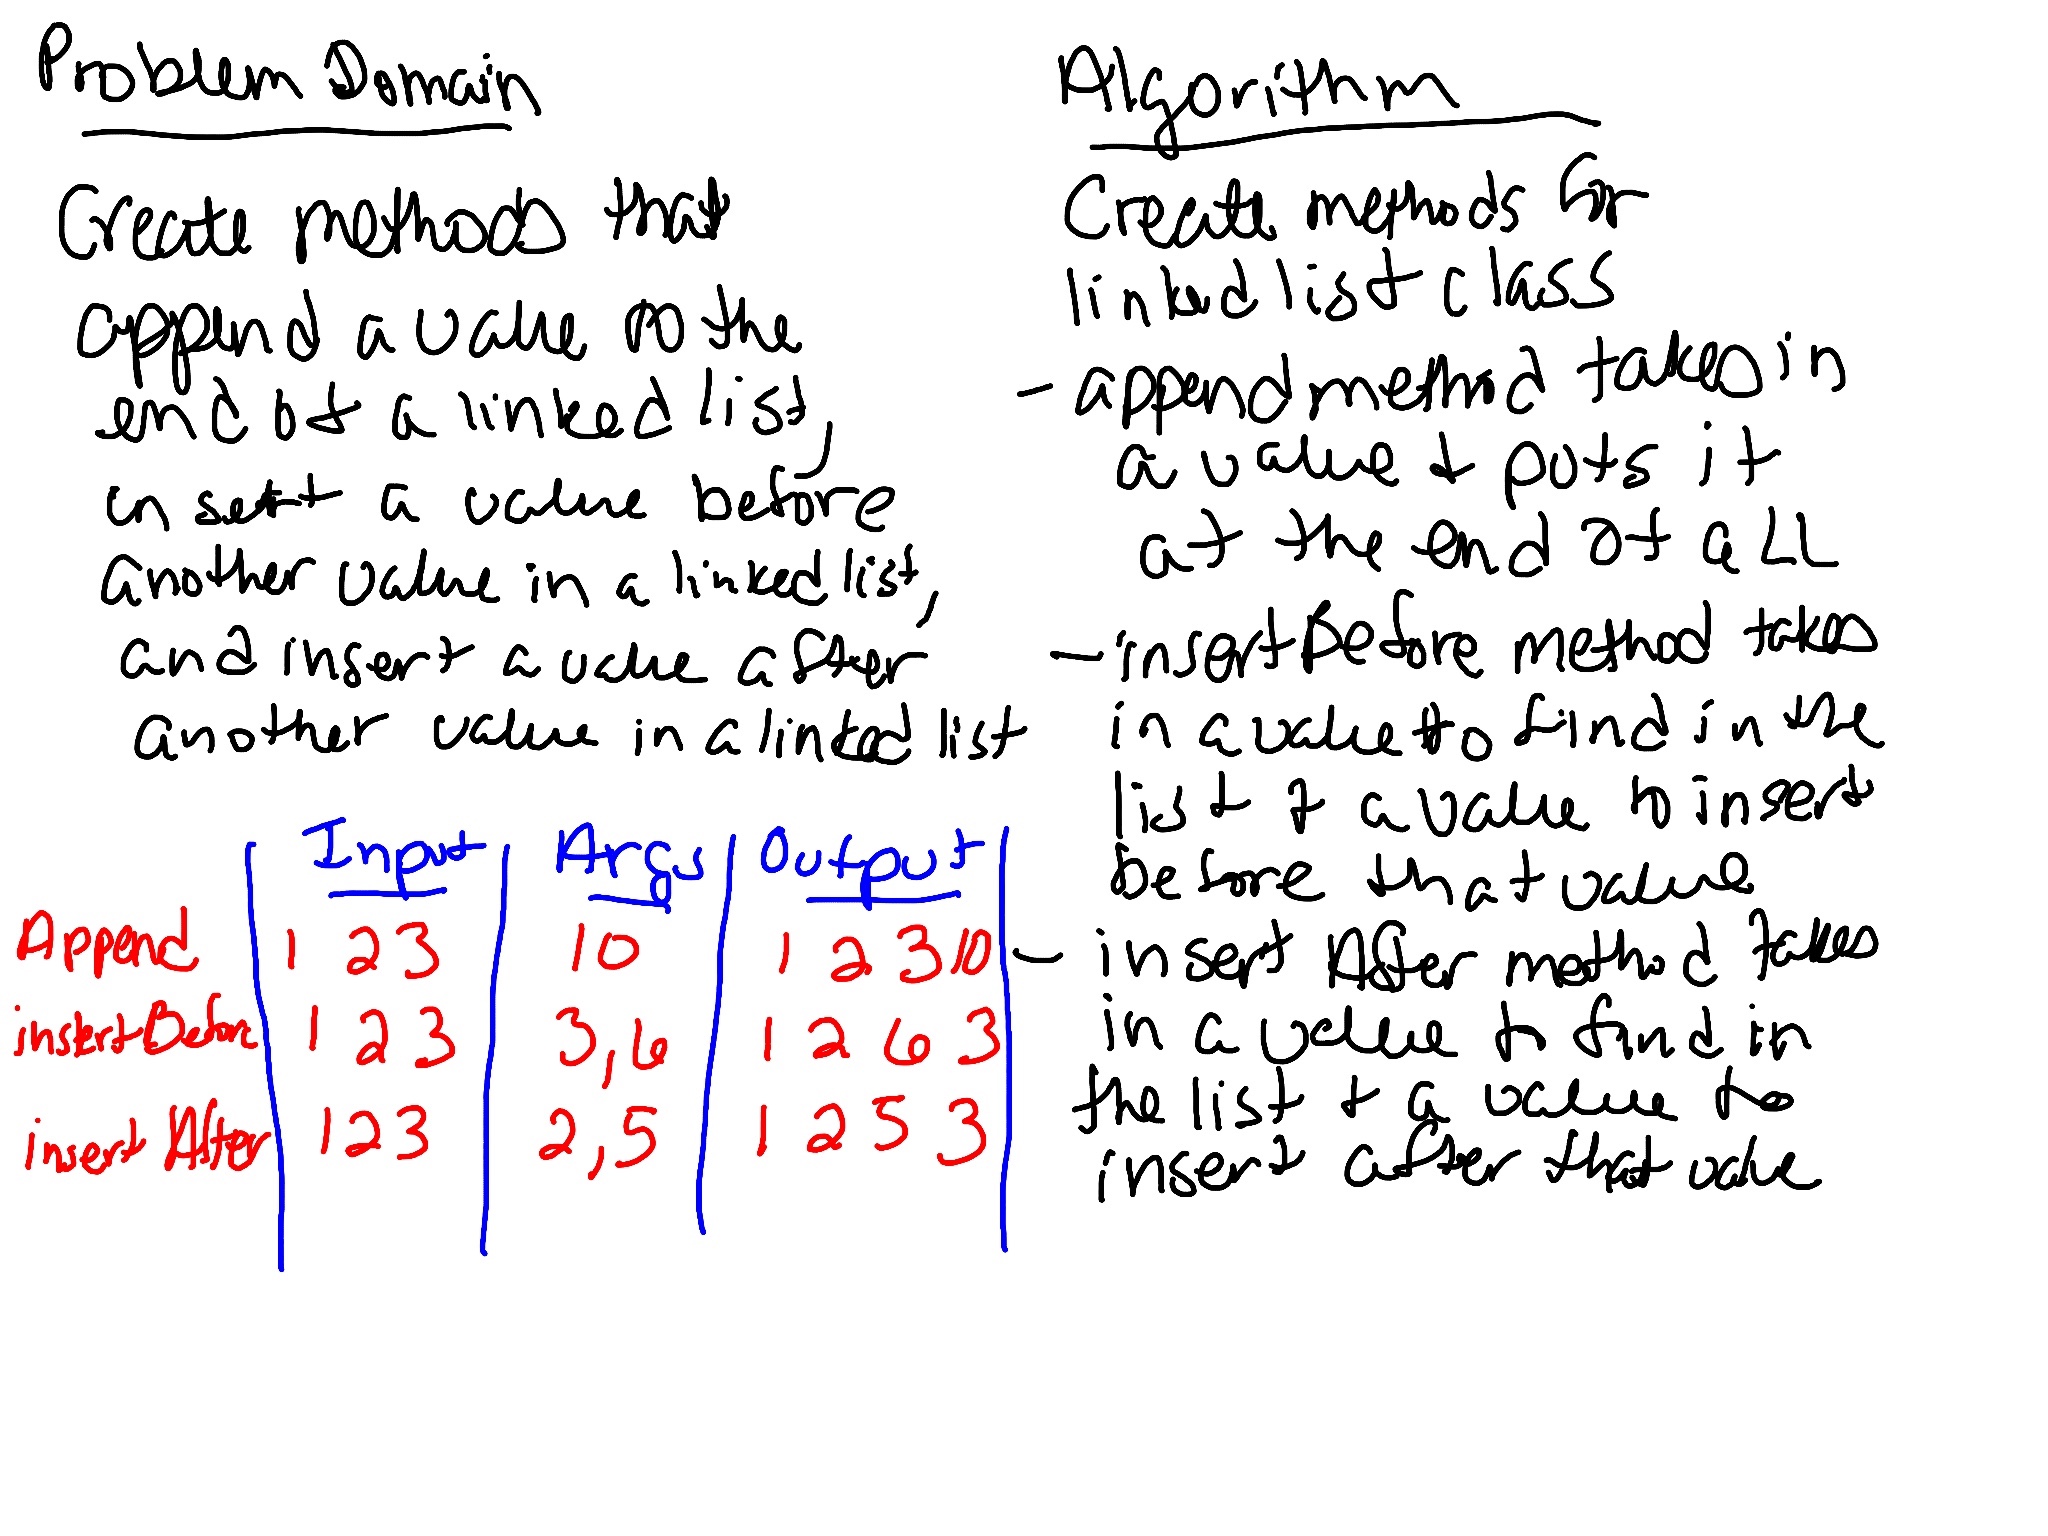 Problem Domain
Create methods that
append a value to the
end of a linked list,
insert a value before
another value in a linked list,
and insert a value after
another value in a linked list
Input Args Output
Append 1 2 3 10 1 2 3 10
insertBefore 1 2 3 3,6 1 2 6 3
insert After 1 2 3 2,5 1 2 5 3
Algorithm
Create methods for
linked list class
- append method takes in
a value + puts it
at the end of a LL
- insertBefore method takes
in a value to find in the
list + a value to insert
before that value
- insert After method takes
in a value to find in
the list + a value to
insert after that value